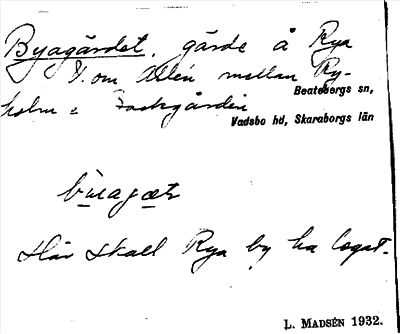 Byagärdet, gärde å Rya
V. om Allén mellan Ry-
holm o Backgården
Beatebergs sn,
Vadsbo hd, Skaraborgs län
bu̇agæt
Här skall Rya by ha legat.
L. MADSÉN 1932.